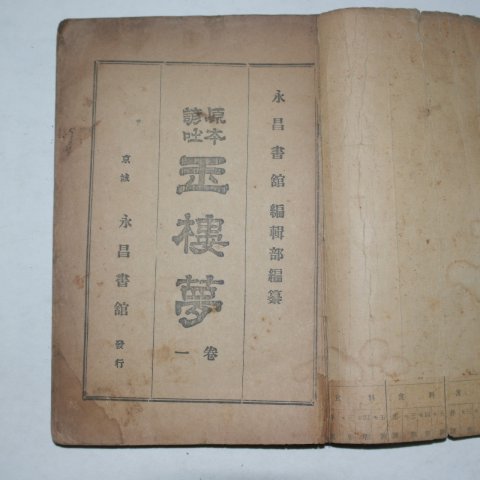 永昌書館編輯部編纂
原本
諺吐
玉樓夢
卷一
京城 永昌書館 發行